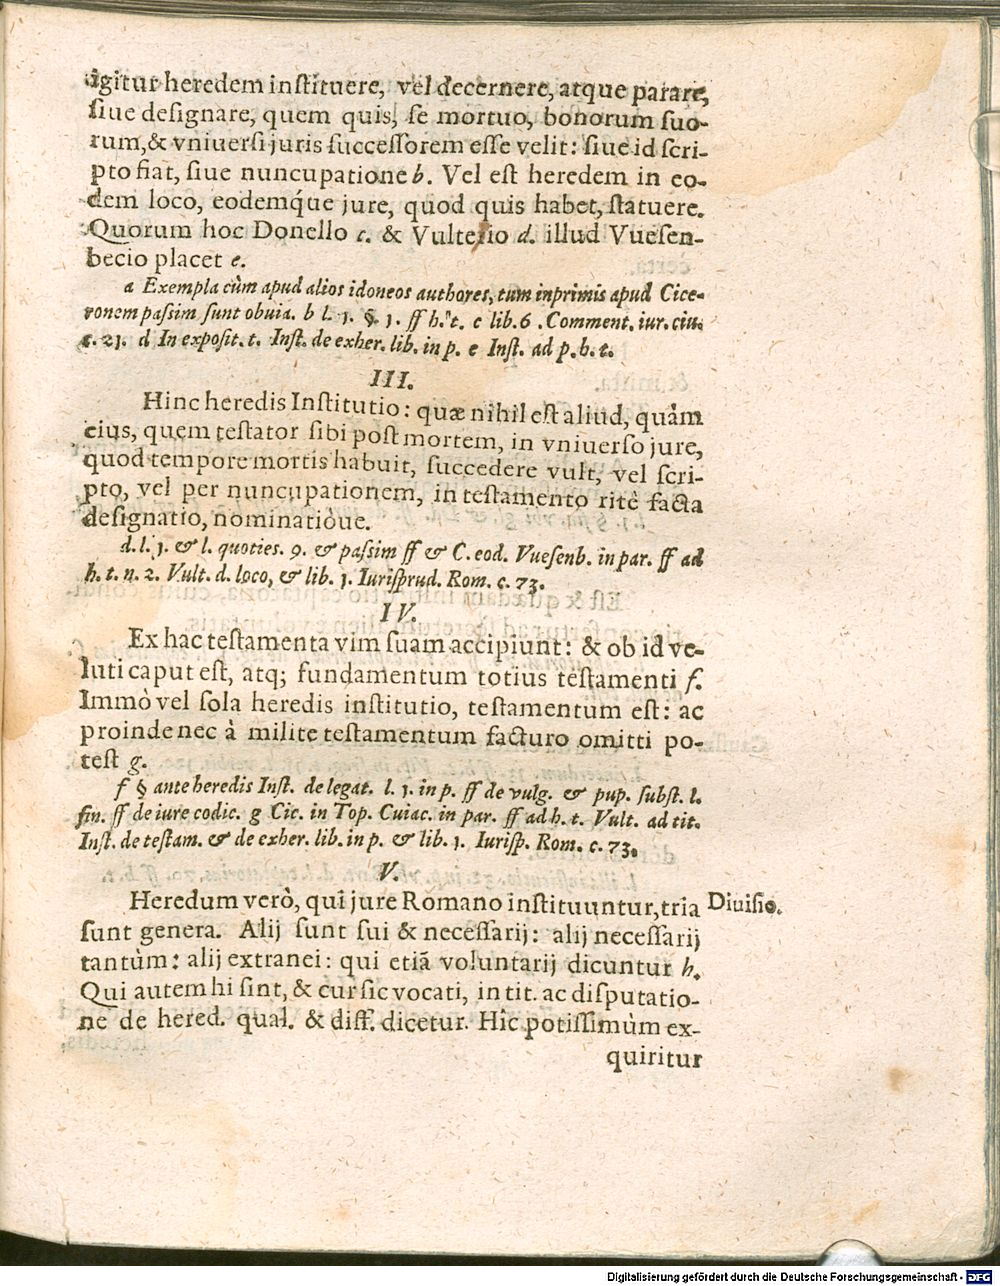 igitur heredem instituere, vel decernere, atque parare,
siue designare, quem quis, se mortuo, bonorum suo-
rum, & vniuersi juris successorem esse velit: siue id scri-
pto fiat, siue nuncupatione b. Vel est heredem in eo-
dem loco, eodemq́ue jure, quod quis habet, statuere.
Quorum hoc Donello c. & Vulteiio d. illud Vuesen-
becio placet e.
a Exempla cùm apud alios idoneos authores, tum inprimis apud Cice-
ronem passim sunt obuia. b l. 1. §. 1. ff h. t. c lib. 6. Comment. iur. ciu.
c. 21. d In exposit. t. Inst. de exher. lib. in p. e Inst. ad p. h. t.
III.
Hinc heredis Institutio: quæ nihil est aliud, quàm
eius, quem testator sibi post mortem, in vniuerso jure,
quod tempore mortis habuit, succedere vult, vel scri-
pto, vel per nuncupationem, in testamento ritè facta
designatio, nominatióue.
d. l. 1. & l. quoties. 9. & passim ff & C. eod. Vuesenb. in par. ff ad
h. t. n. 2. Vult. d. loco, & lib. 1. Iurisprud. Rom. c. 73.
IV.
Ex hac testamenta vim suam accipiunt: & ob id ve-
luti caput est, atq; fundamentum totius testamenti f.
Immò vel sola heredis institutio, testamentum est: ac
proinde nec à milite testamentum facturo omitti po-
test g.
f § ante heredis Inst. de legat. l. 1. in p. ff de vulg. & pup. subst. l.
fin. ff de iure codic. g Cic. in Top. Cuiac. in par. ff ad h. t. Vult. ad tit.
Inst. de testam. & de exher. lib. in p. & lib. 1. Iurisp. Rom. c. 73.
V.
Heredum verò, qui jure Romano instituuntur, tria
Diuisio.
sunt genera. Alij sunt sui & necessarij: alij necessarij
tantùm: alij extranei: qui etiā voluntarij dicuntur h.
Qui autem hi sint, & cur sic vocati, in tit. ac disputatio-
ne de hered. qual. & diff. dicetur. Hîc potissimùm ex-
quiritur
Digitalisierung gefördert durch die Deutsche Forschungsgemeinschaft - DFG